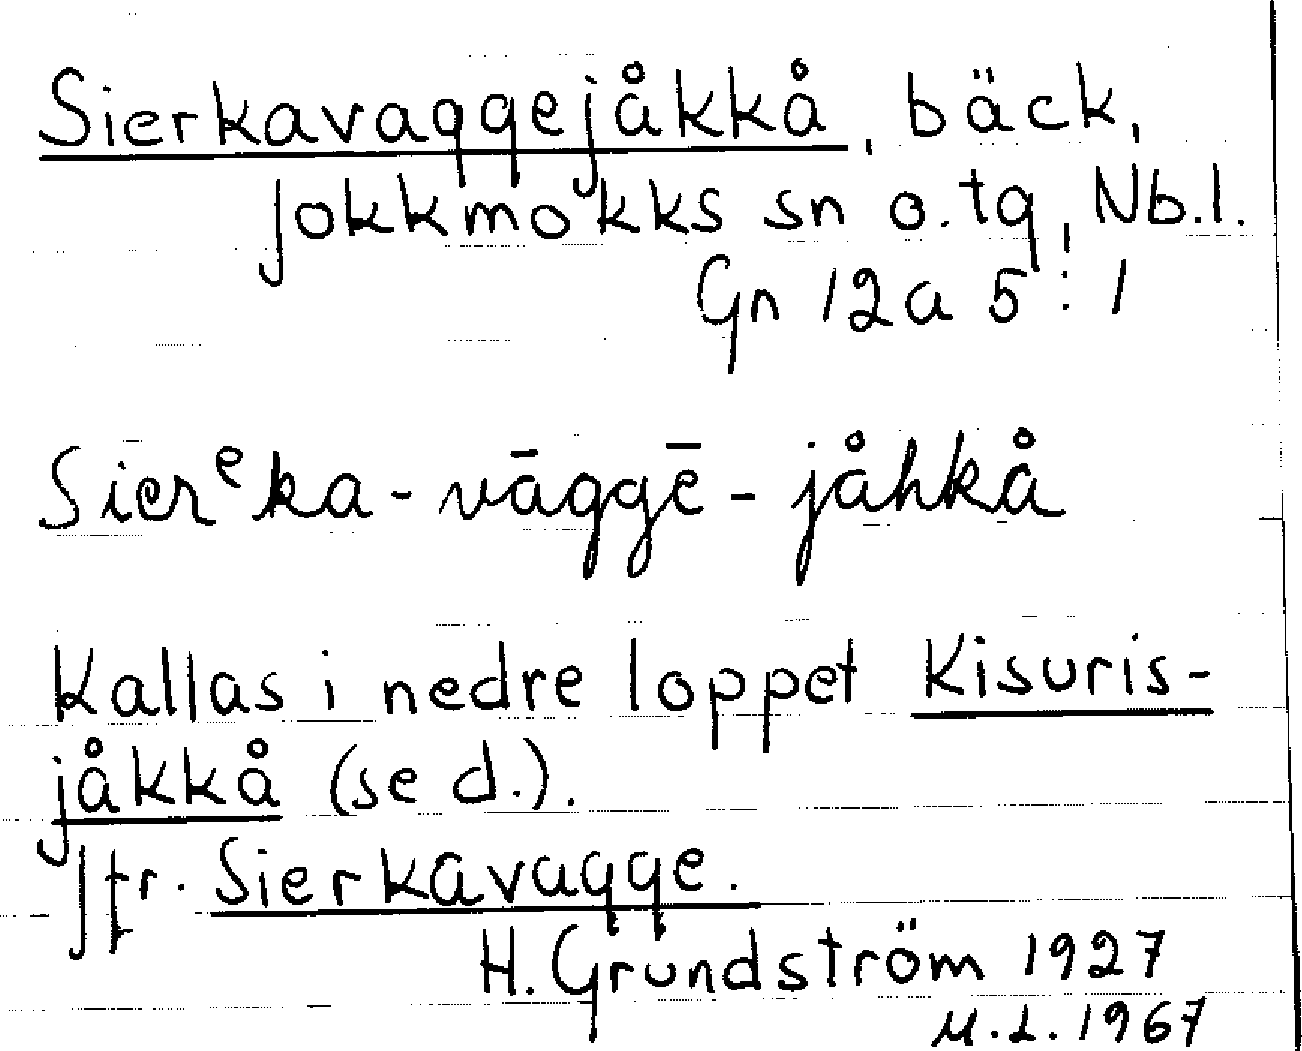 Sierkavaggejåkkå, bäck,
Jokkmokks sn o. tg, Nb.l.
Gn 12a 5:1
Sierᵉka-vāggē-jåhkå
Kallas i nedre loppet Kisuris-
jåkkå (se d.).
Jfr. Sierkavagge.
H. Grundström 1927
M.L. 1967